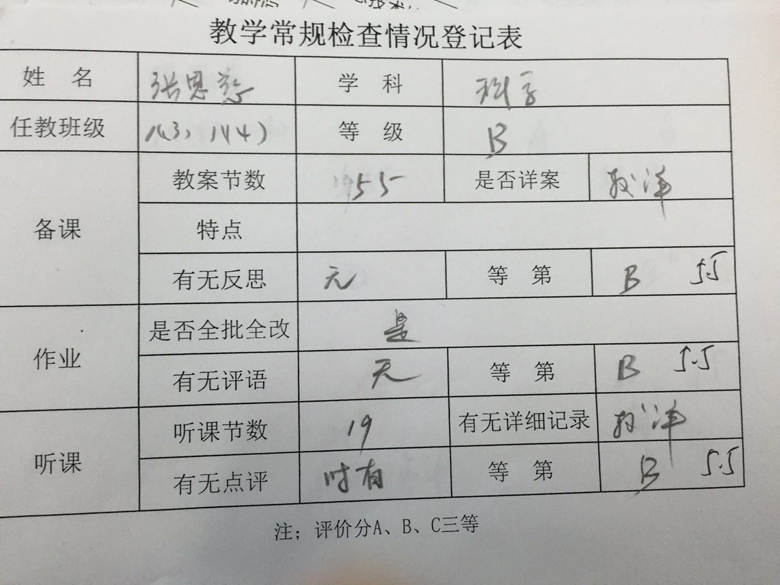 教学常规检查情况登记表
姓 名 张恩 学 科 科学
任教班级 等 级 B
备课
教案节数 55 是否详案 较详
特点
有无反思 无 等 第 B 5.5
作业
是否全批全改 是
有无评语 无 等 第 B 5.5
听课
听课节数 19 有无详细记录 较详
有无点评 时有 等 第 B 5.5
注；评价分A、B、C三等